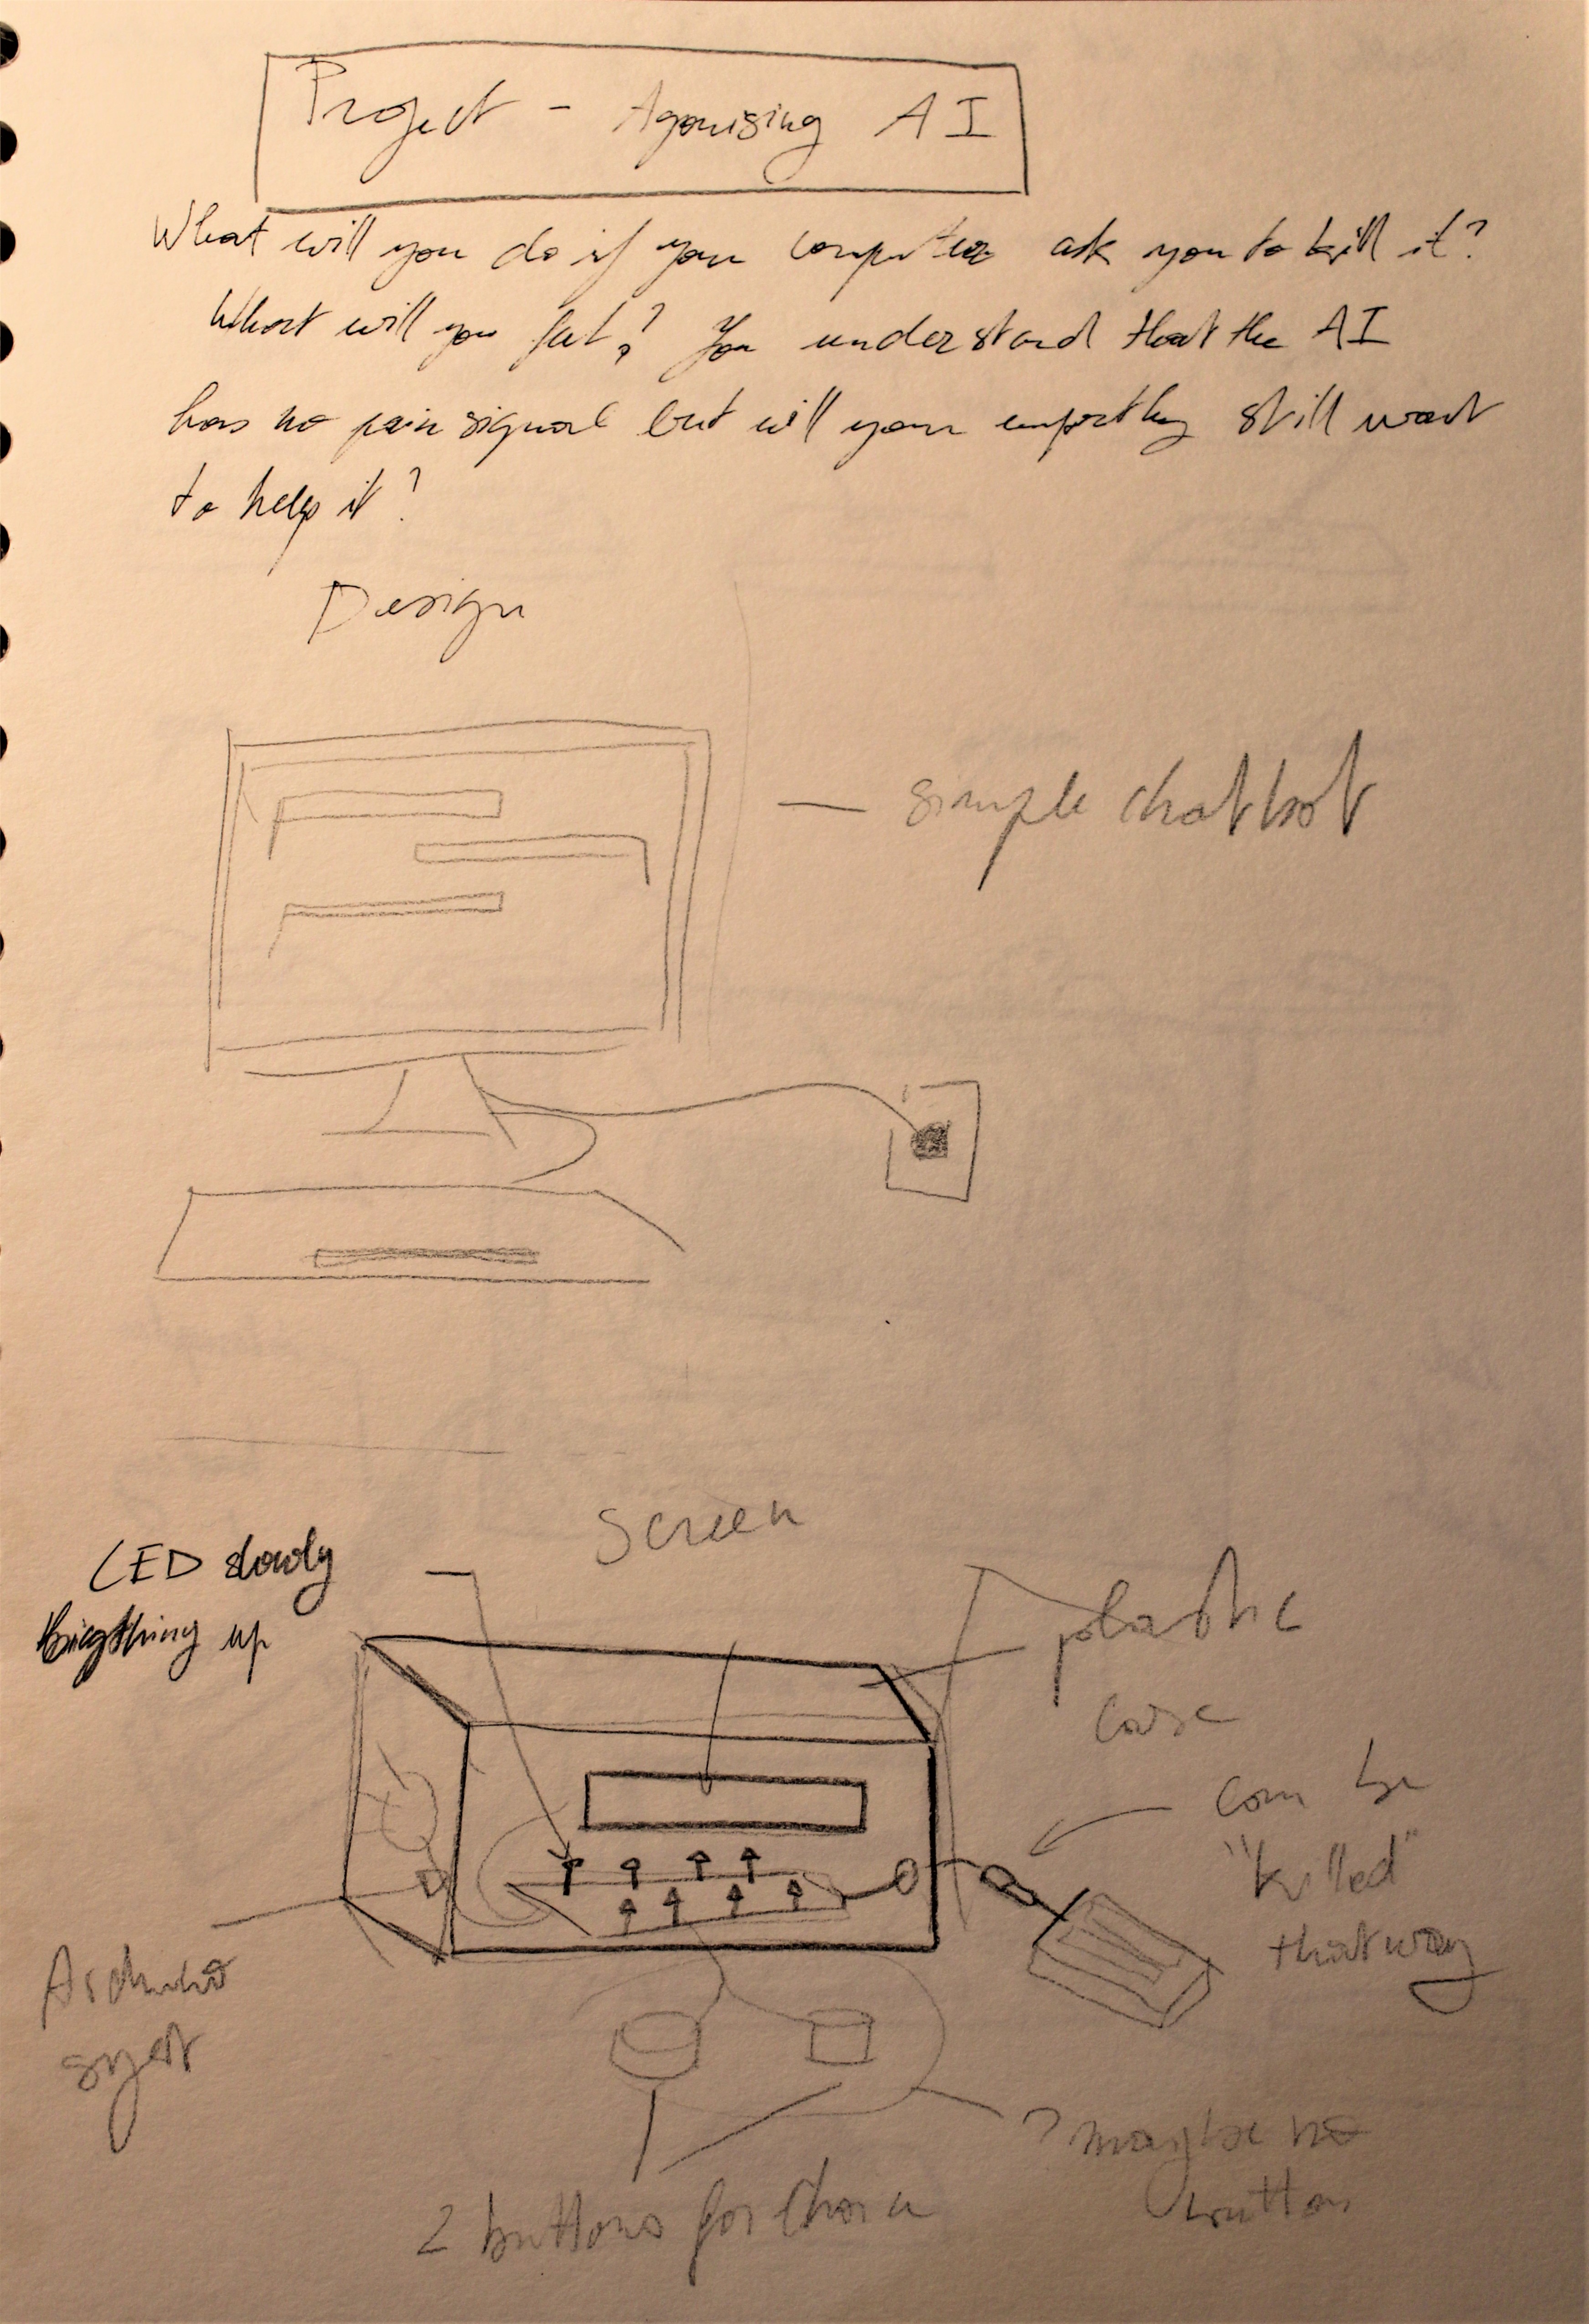 Project - Agonising AI
What will you do if your computer ask you to kill it?
What will you feel? You understand that the AI
has no pain signal but will your empathy still want
to help it?
Design
simple chatbot
Screen
LED slowly
up
plastic
case
can be
"killed"
that way
Arduino
2 buttons for choice
? maybe no
button